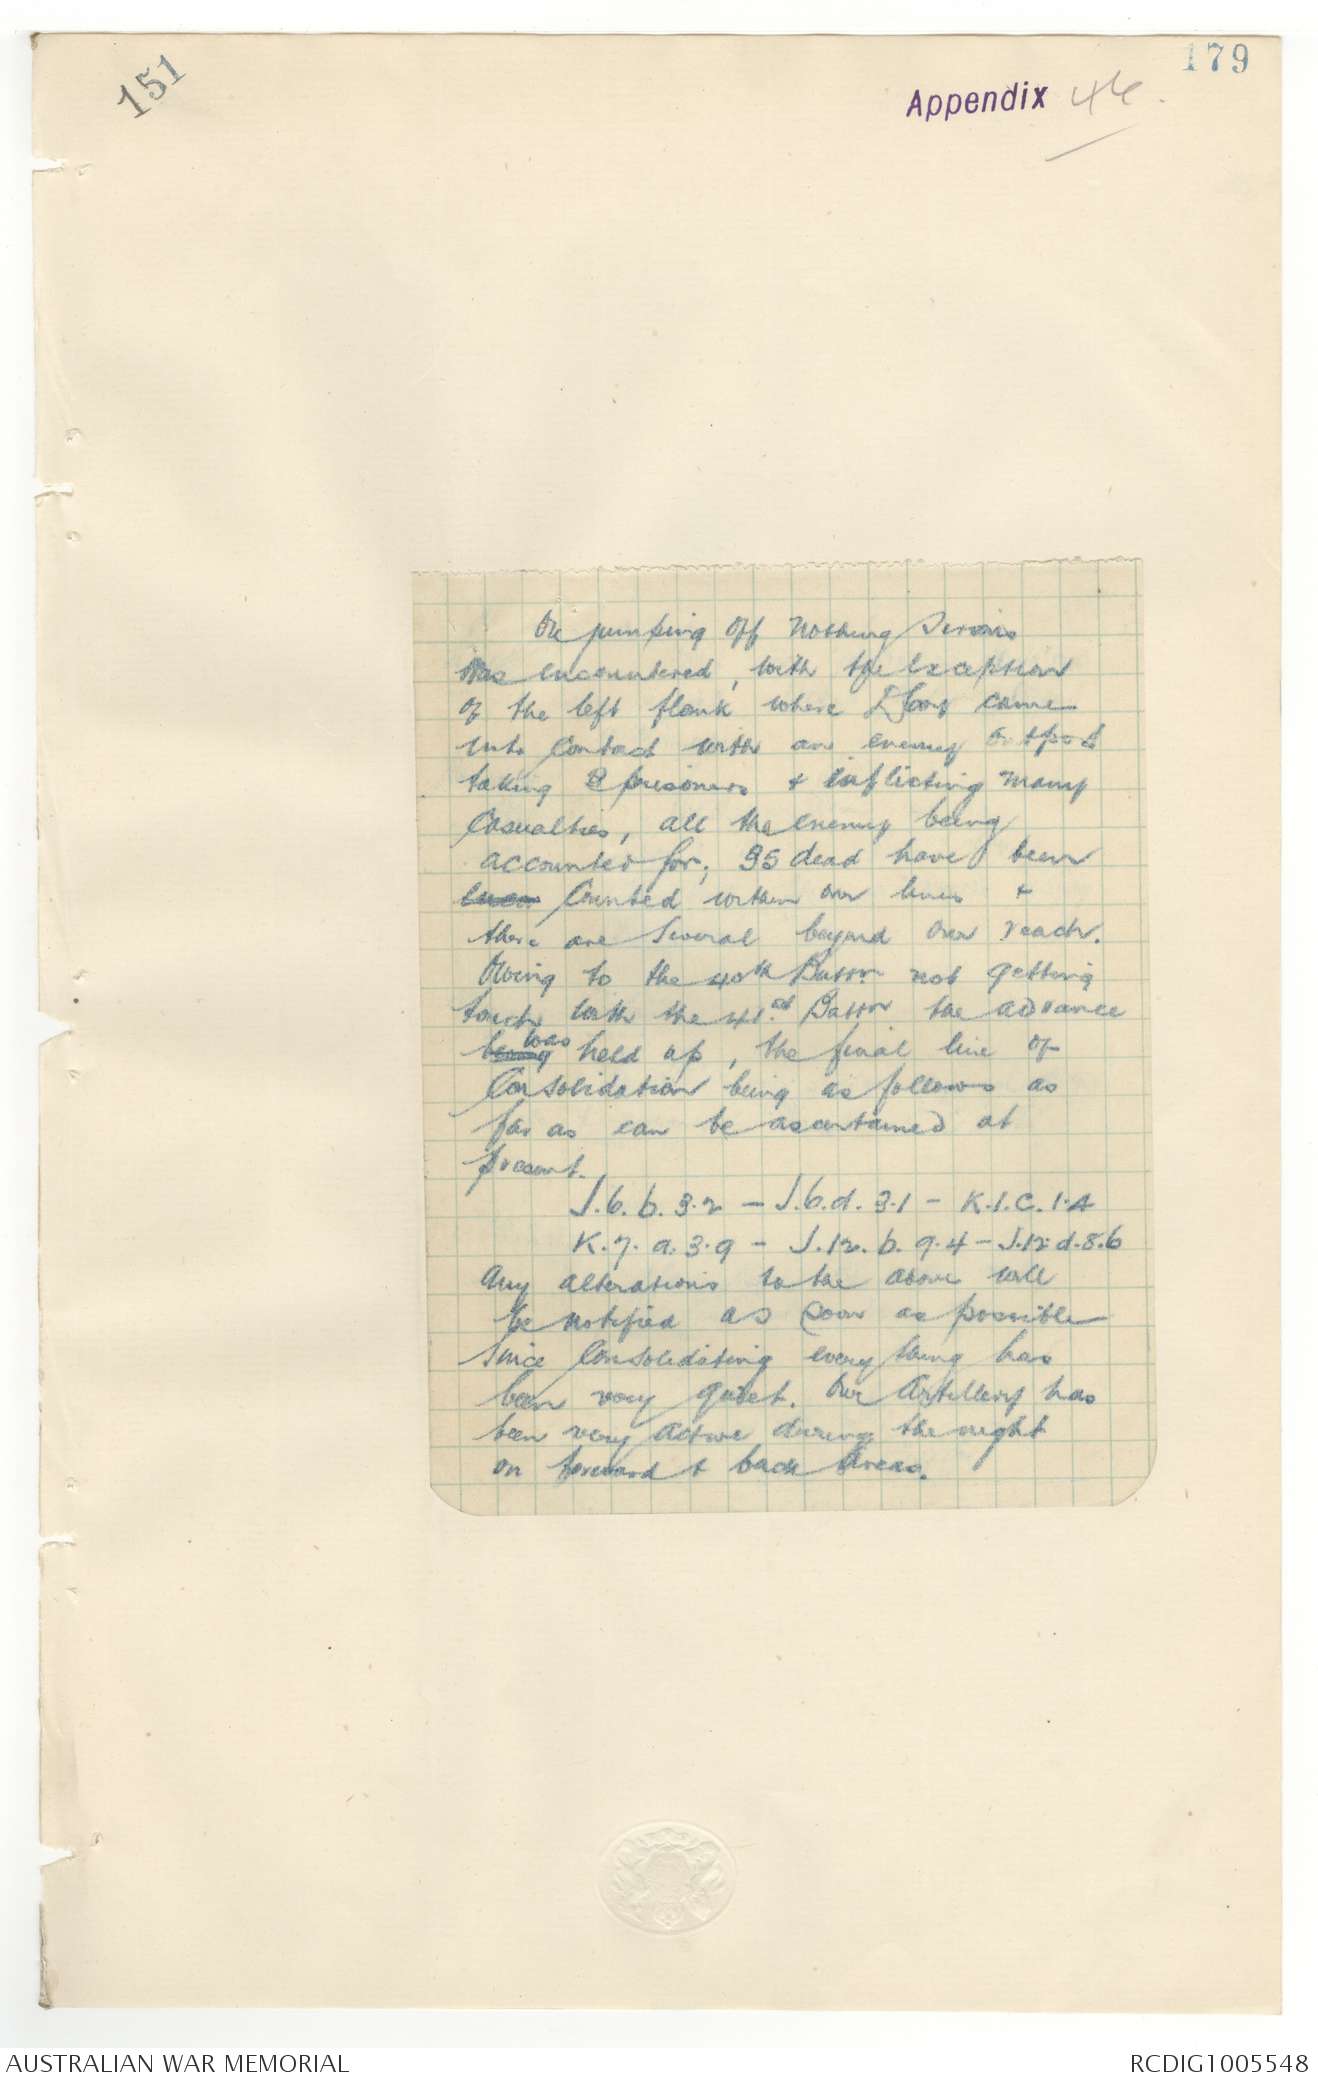 179
151
Appendix 46.
On jumping off nothing serious
was encountered, with the exception
of the left flank where D Coy came
into contact with an enemy outpost
taking 2 prisoners & inflicting many
Casualties, all the enemy being
accounted for; 35 dead have been
Counted within our lines &
there are several beyond our reach.
Owing to the 40th Battn not getting
touch with the 41st Battn the advance
was
being held up, the final line of
Consolidation being as follows as
far as can be ascertained at
present.
J.6.b.3.2 - J.6.d.3.1 - K.1.C.1.4
K.7.a.3.9 - J.12.b.9.4 - J.12.d.8.6
Any alterations to the above will
be notified as soon as possible
Since Consolidating every thing has
been very quiet. Our Artillery has
been very active during the night
on forward & back Areas.
AUSTRALIAN WAR MEMORIAL
RCDIG1005548